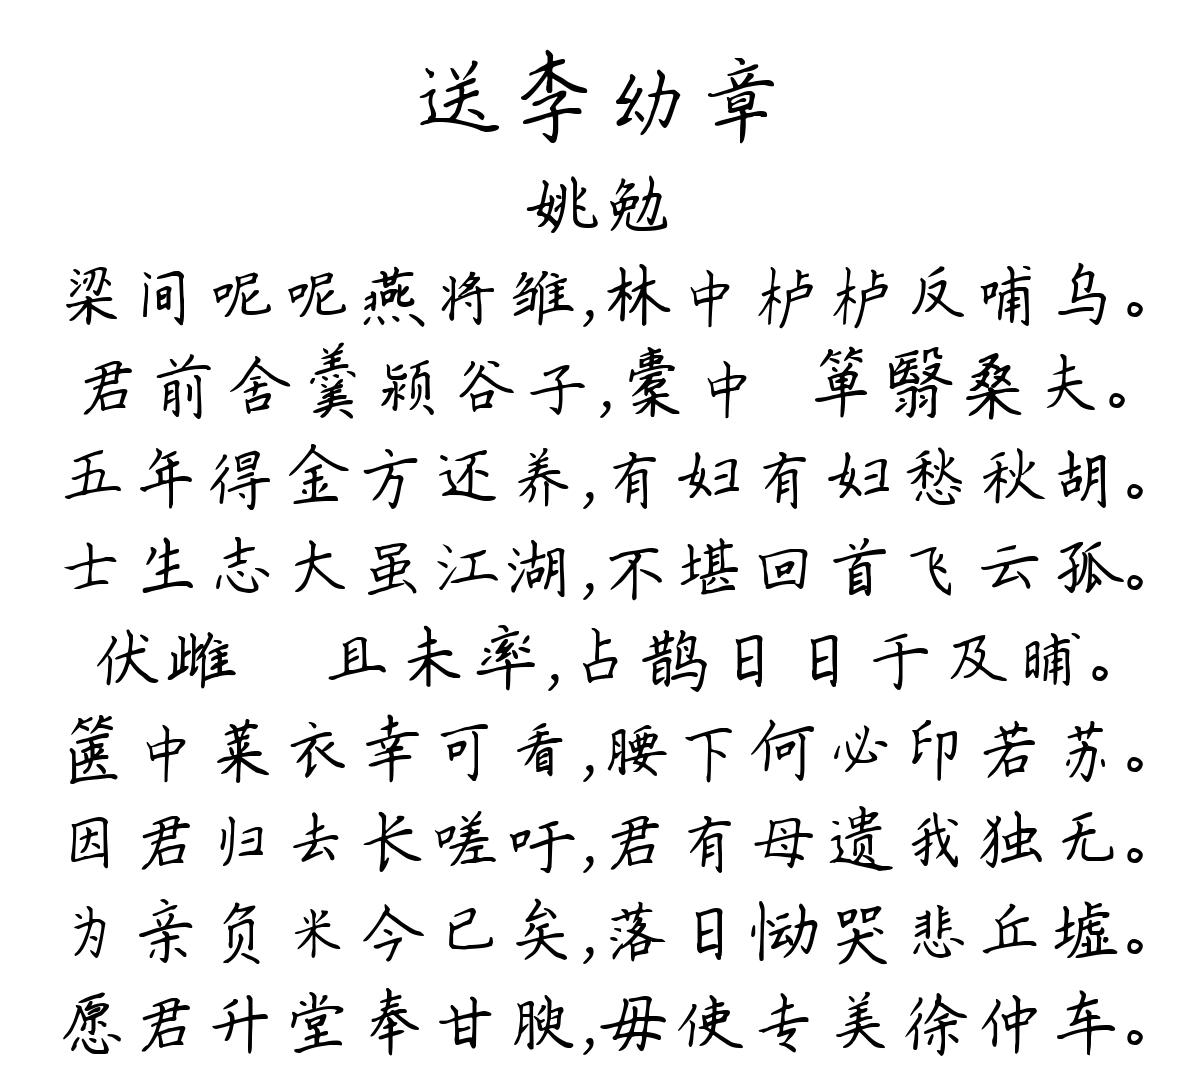 送李幼章
姚勉
梁间呢呢燕将雏,林中栌栌反哺乌。
君前舍羹颍谷子,橐中 箪翳桑夫。
五年得金方还养,有妇有妇愁秋胡。
士生志大虽江湖,不堪回首飞云孤。
伏雌 且未率,占鹊日日于及晡。
箧中莱衣幸可看,腰下何必印若苏。
因君归去长嗟吁,君有母遗我独无。
为亲负米今已矣,落日恸哭悲丘墟。
愿君升堂奉甘腴,毋使专美徐仲车。